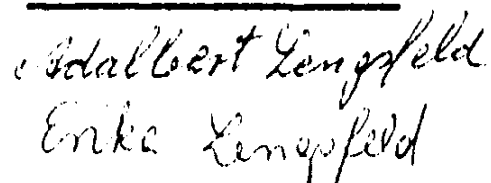 Adalbert Lengsfeld
Erika Lengsfeld